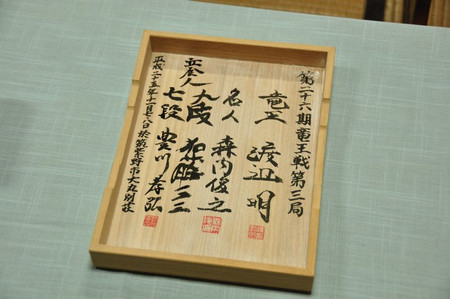 第二十六期竜王戦第三局
竜王 渡辺明
名人 森内俊之
立会人 九段
七段 豊川孝弘
平成二十五年十一月七・八日於筑紫野市大丸別荘